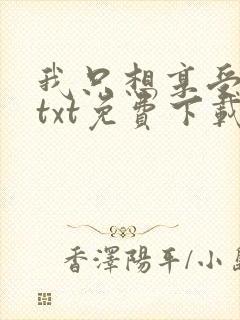 我只想享受
txt免費下載
香澤陽平/小島